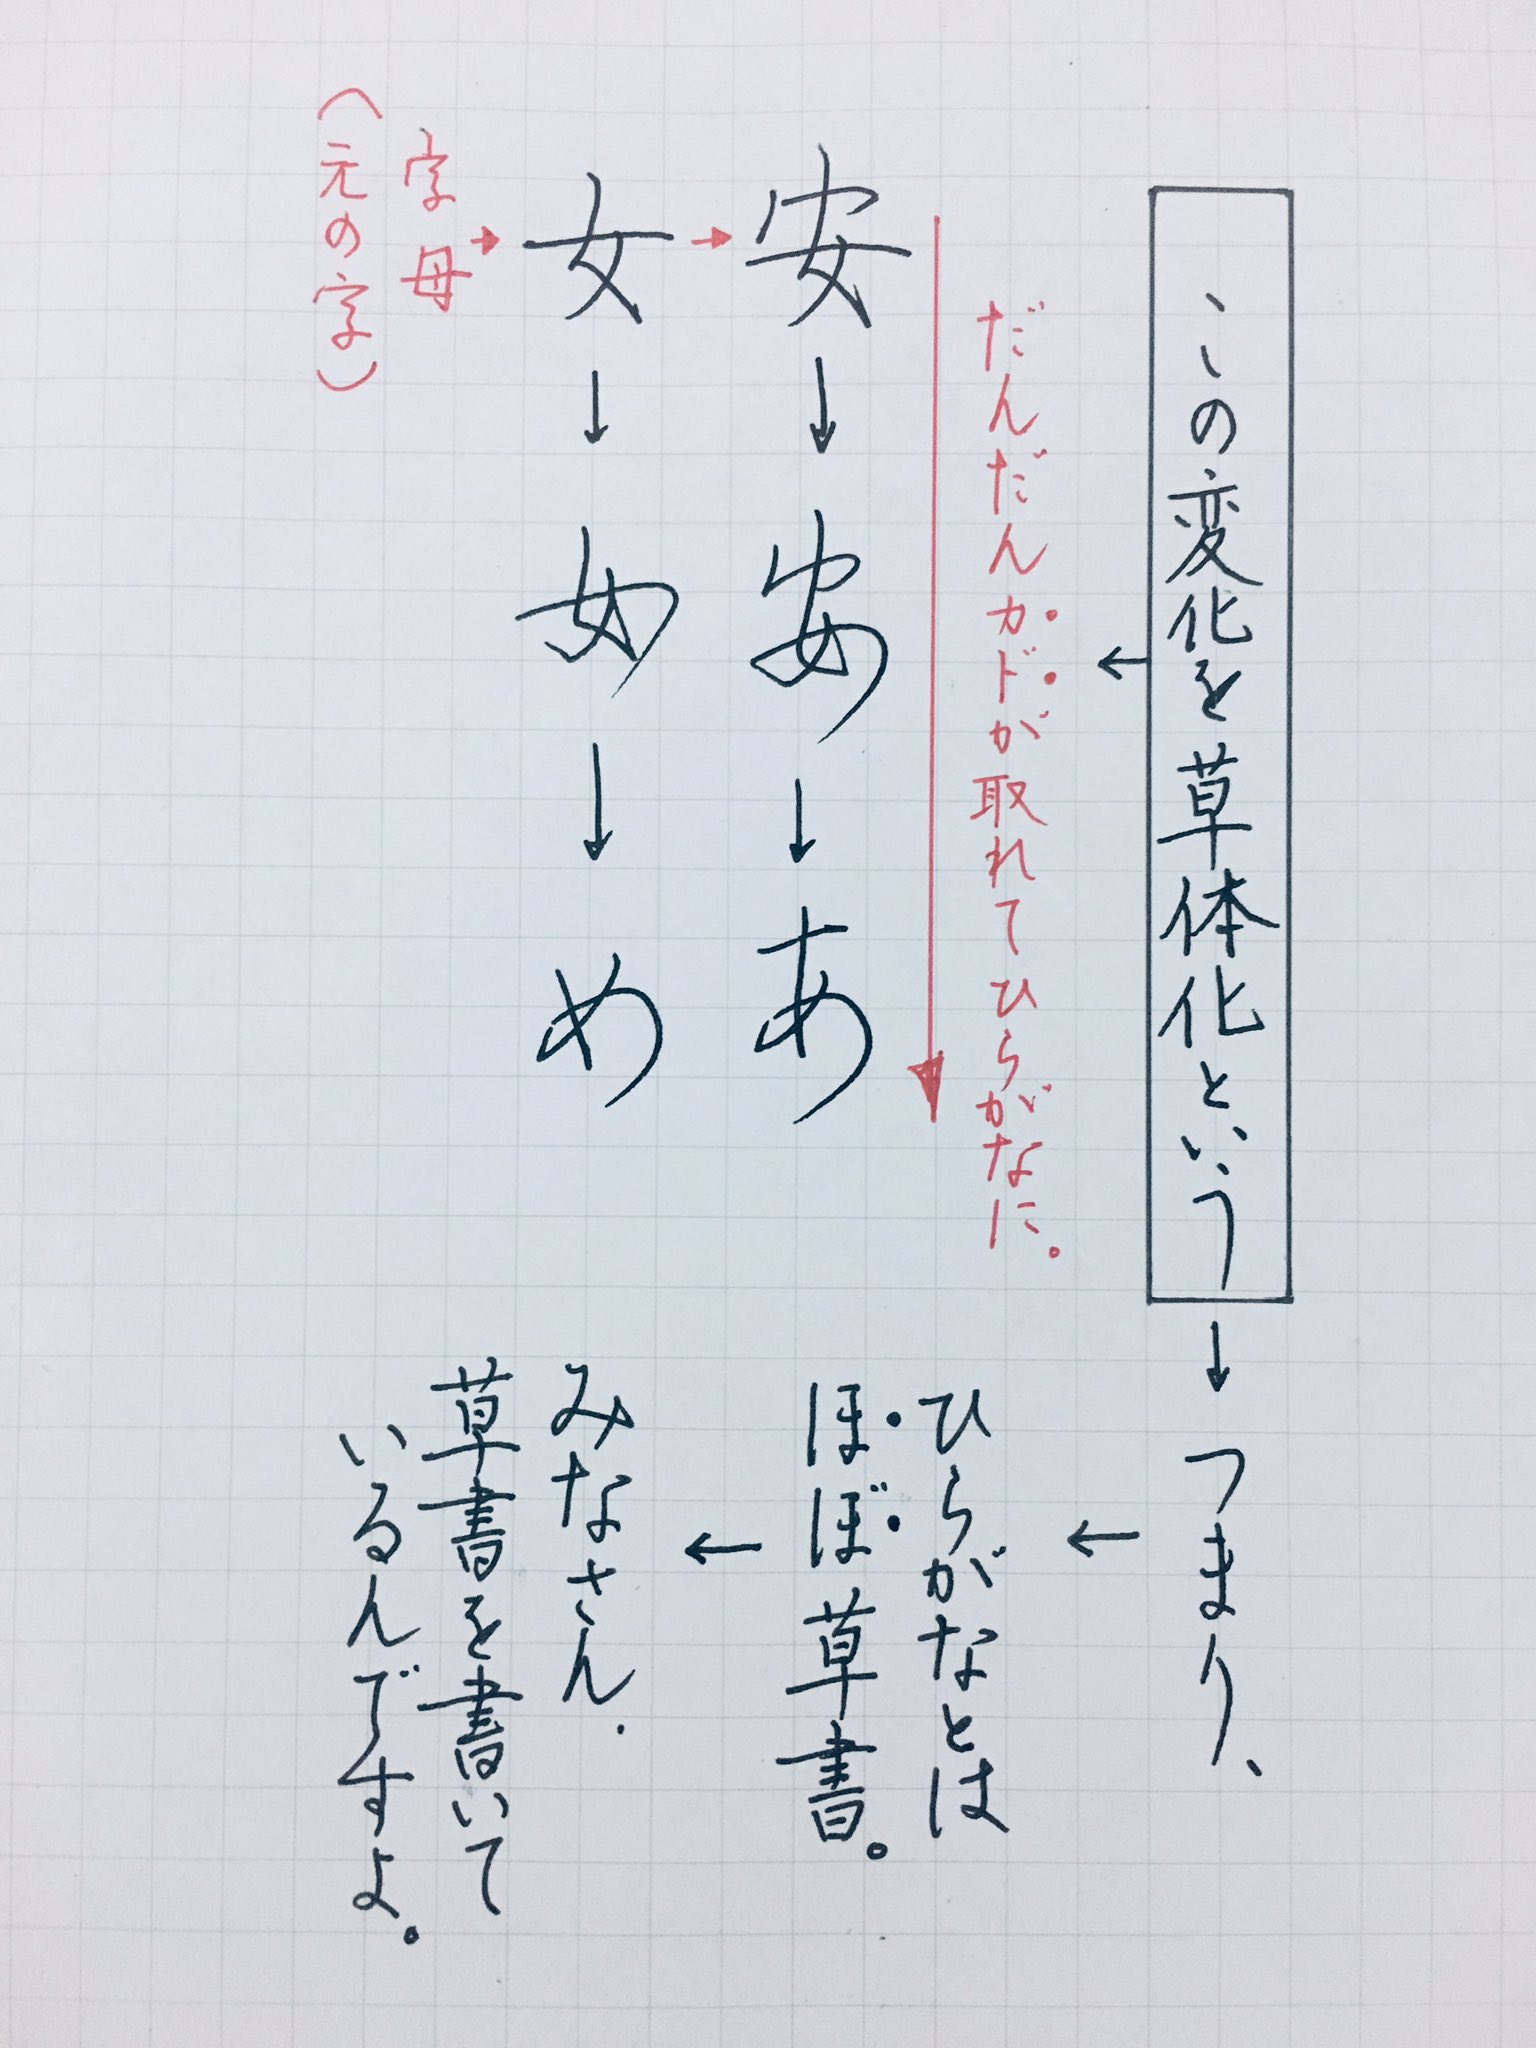 この変化を草体化という
だんだんカドが取れてひらがなに。
安→安→あ
女→女→め
字母
(元の字)
つまり、
ひらがなとは
ほぼ草書。
みなさん、
草書を書いて
いるんですよ。